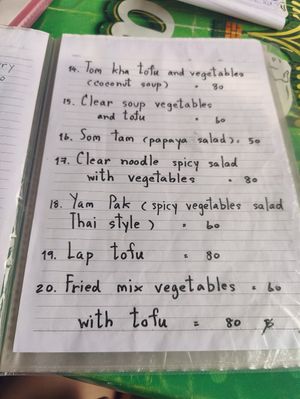 14. Tom kha tofu and vegetables
(coconut soup) = 80
15. Clear soup vegetables
and tofu = 60
16. Som tam (papaya salad) = 50
17. Clear noodle spicy salad
with vegetables = 80
18. Yam Pak (spicy vegetables salad
Thai style) = 60
19. Lap tofu = 80
20. Fried mix vegetables = 60
with tofu = 80